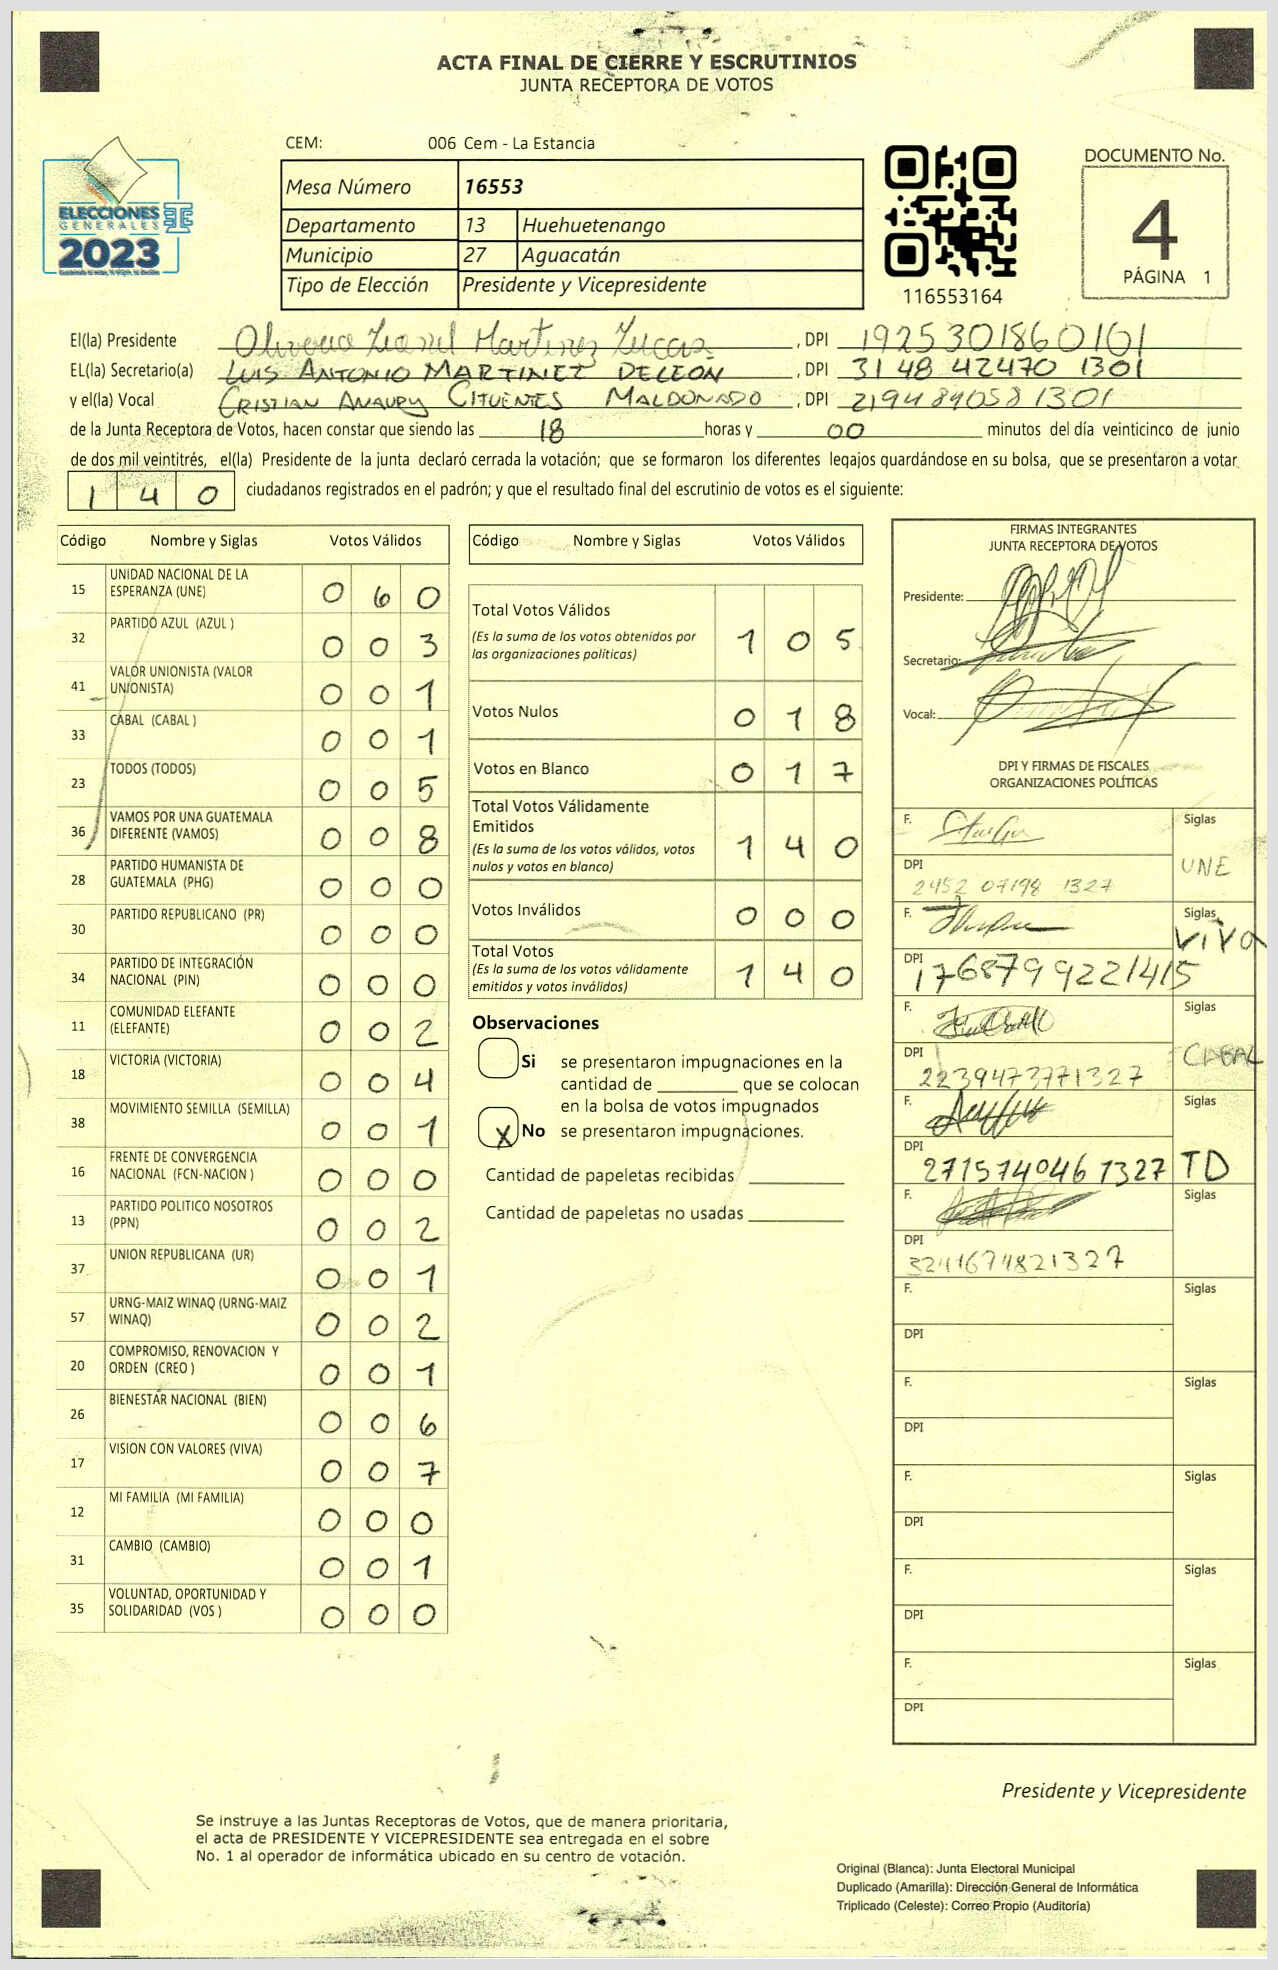 ACTA FINAL DE CIERRE Y ESCRUTINIOS
JUNTA RECEPTORA DE VOTOS
CEM: 006 Cem - La Estancia
Mesa Número 16553
Departamento 13 Huehuetenango
Municipio 27 Aguacatán
Tipo de Elección Presidente y Vicepresidente
ELECCIONES
GENERALES
2023
116553164
DOCUMENTO No.
4
PÁGINA 1
El(la) Presidente Martinez Lucas, DPI 1925301860101
EL(la) Secretario(a) LUIS ANTONIO MARTINEZ DELEÓN, DPI 3148 42470 1301
y el(la) Vocal CRISTIAN AMAURY CIFUENTES MALDONADO, DPI 2194840581301
de la Junta Receptora de Votos, hacen constar que siendo las 18 horas y 00 minutos del día veinticinco de junio
de dos mil veintitrés, el(la) Presidente de la junta declaró cerrada la votación; que se formaron los diferentes legajos guardándose en su bolsa, que se presentaron a votar
1 4 0 ciudadanos registrados en el padrón; y que el resultado final del escrutinio de votos es el siguiente:
Código Nombre y Siglas Votos Válidos
15 UNIDAD NACIONAL DE LA ESPERANZA (UNE) 0 6 0
32 PARTIDO AZUL (AZUL ) 0 0 3
41 VALOR UNIONISTA (VALOR UNIONISTA) 0 0 1
33 CABAL (CABAL ) 0 0 1
23 TODOS (TODOS) 0 0 5
36 VAMOS POR UNA GUATEMALA DIFERENTE (VAMOS) 0 0 8
28 PARTIDO HUMANISTA DE GUATEMALA (PHG) 0 0 0
30 PARTIDO REPUBLICANO (PR) 0 0 0
34 PARTIDO DE INTEGRACIÓN NACIONAL (PIN) 0 0 0
11 COMUNIDAD ELEFANTE (ELEFANTE) 0 0 2
18 VICTORIA (VICTORIA) 0 0 4
38 MOVIMIENTO SEMILLA (SEMILLA) 0 0 1
16 FRENTE DE CONVERGENCIA NACIONAL (FCN-NACION ) 0 0 0
13 PARTIDO POLITICO NOSOTROS (PPN) 0 0 2
37 UNION REPUBLICANA (UR) 0 0 1
57 URNG-MAIZ WINAQ (URNG-MAIZ WINAQ) 0 0 2
20 COMPROMISO, RENOVACION Y ORDEN (CREO ) 0 0 1
26 BIENESTAR NACIONAL (BIEN) 0 0 6
17 VISION CON VALORES (VIVA) 0 0 7
12 MI FAMILIA (MI FAMILIA) 0 0 0
31 CAMBIO (CAMBIO) 0 0 1
35 VOLUNTAD, OPORTUNIDAD Y SOLIDARIDAD (VOS ) 0 0 0
Código Nombre y Siglas Votos Válidos
Total Votos Válidos 1 0 5
(Es la suma de los votos obtenidos por
las organizaciones políticas)
Votos Nulos 0 1 8
Votos en Blanco 0 1 7
Total Votos Válidamente
Emitidos 1 4 0
(Es la suma de los votos válidos, votos
nulos y votos en blanco)
Votos Inválidos 0 0 0
Total Votos 1 4 0
(Es la suma de los votos válidamente
emitidos y votos inválidos)
Observaciones
Si se presentaron impugnaciones en la
cantidad de ________ que se colocan
en la bolsa de votos impugnados
X No se presentaron impugnaciones.
Cantidad de papeletas recibidas
Cantidad de papeletas no usadas
FIRMAS INTEGRANTES
JUNTA RECEPTORA DE VOTOS
Presidente:
Secretario:
Vocal:
DPI Y FIRMAS DE FISCALES
ORGANIZACIONES POLÍTICAS
F. Siglas
DPI 2452 07198 1327 UNE
F. Siglas
DPI 1768799221415 VIVA
F. Siglas
DPI 2239473771327 CABAL
F. Siglas
DPI 271574046 1327 TD
F. Siglas
DPI 3241674821327
F. Siglas
DPI
F. Siglas
DPI
F. Siglas
DPI
F. Siglas
DPI
F. Siglas
DPI
Presidente y Vicepresidente
Se instruye a las Juntas Receptoras de Votos, que de manera prioritaria,
el acta de PRESIDENTE Y VICEPRESIDENTE sea entregada en el sobre
No. 1 al operador de informática ubicado en su centro de votación.
Original (Blanca): Junta Electoral Municipal
Duplicado (Amarilla): Dirección General de Informática
Triplicado (Celeste): Correo Propio (Auditoría)